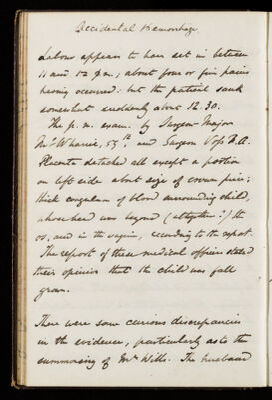 Accidental Hemorrhage.
Labour appears to have set in between
11 and 12 p.m.; about four or five pains
having occurred: but the patient sank
somewhat suddenly about 12.30.
The p. m. exam. by Surgeon Major
McWharrie, 55th and Surgeon R.A.
Placenta detached all except a portion
on left side about size of crown piece;
thick coagulum of blood surrounding child,
whose head was beyond (altogether?) the
os, and in the vagina, according to the report.
The report of these medical officers stated
their opinion that the child was full
grown.
There were some curious discrepancies
in the evidence, particularly as to the
summoning of Mr Wills. The husband